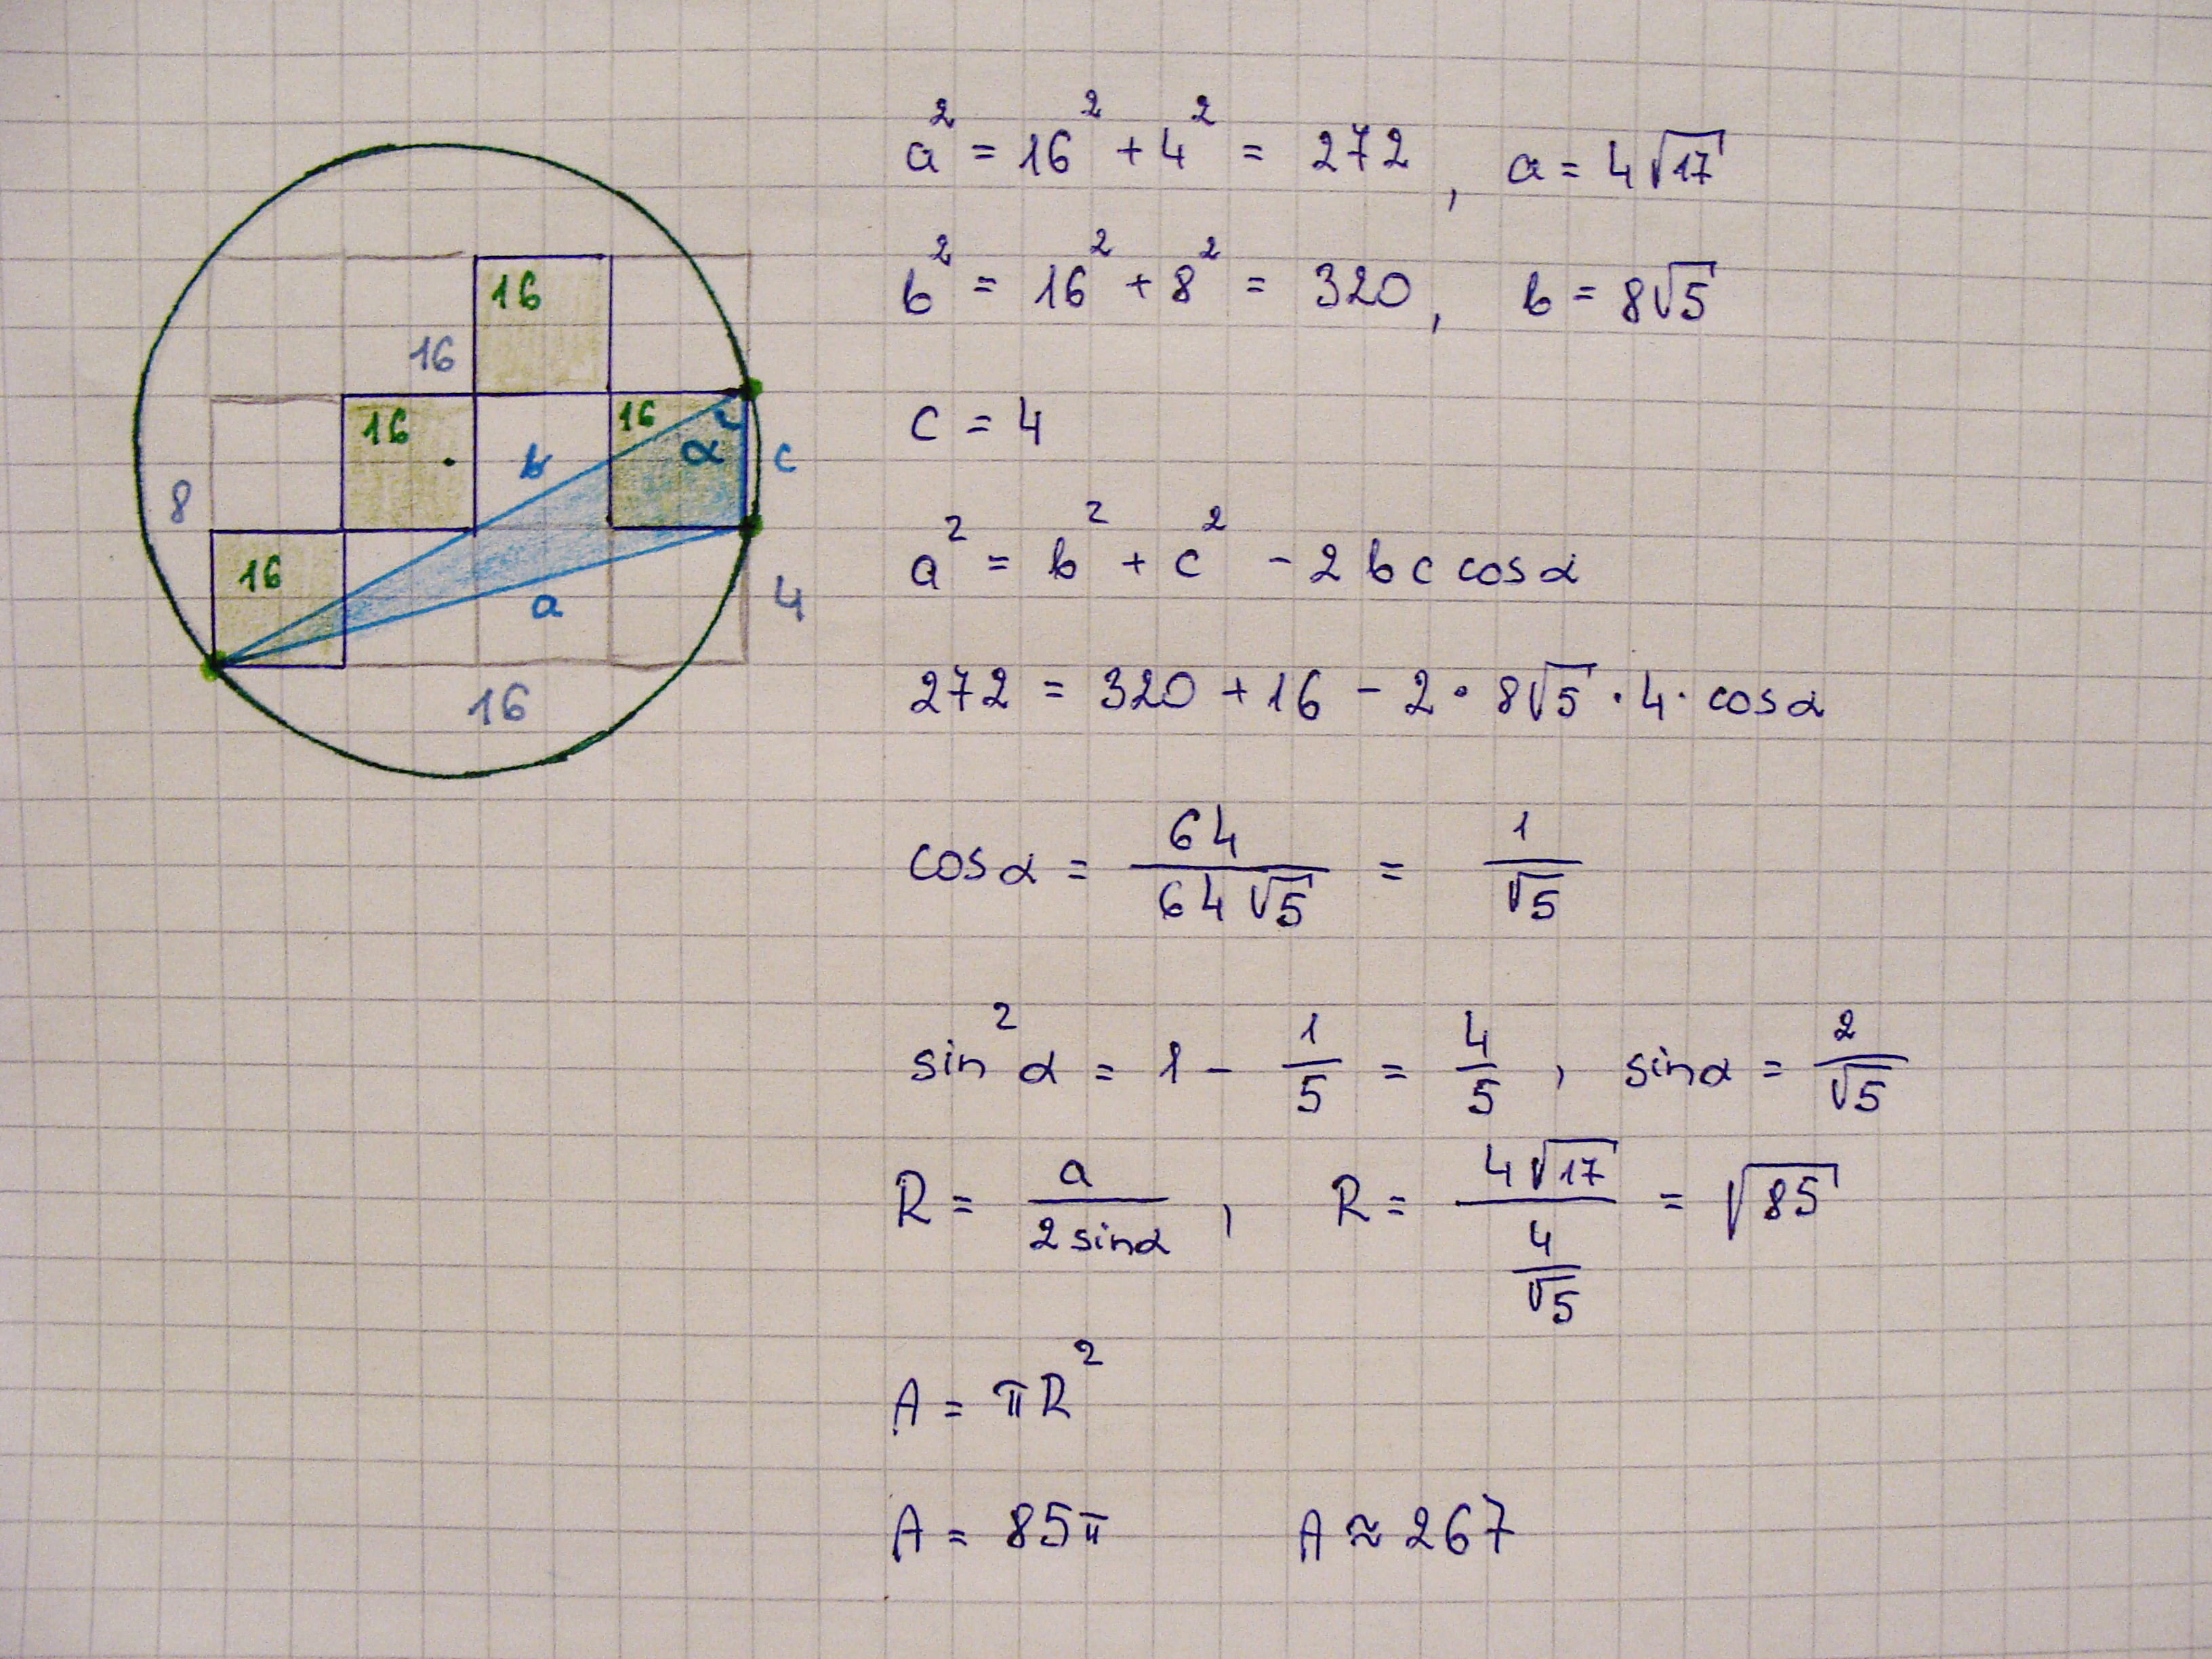 16
16
16
16
16
b
α
c
8
16
a
4
16
a² = 16² + 4² = 272 , a = 4√17
b² = 16² + 8² = 320 , b = 8√5
c = 4
a² = b² + c² - 2 b c cos α
272 = 320 + 16 - 2 · 8√5 · 4 · cos α
cos α = 64 / 64√5 = 1 / √5
sin² α = 1 - 1/5 = 4/5 , sin α = 2/√5
R = a / 2 sin α , R = 4√17 / (4/√5) = √85
A = πR²
A = 85π A ≈ 267